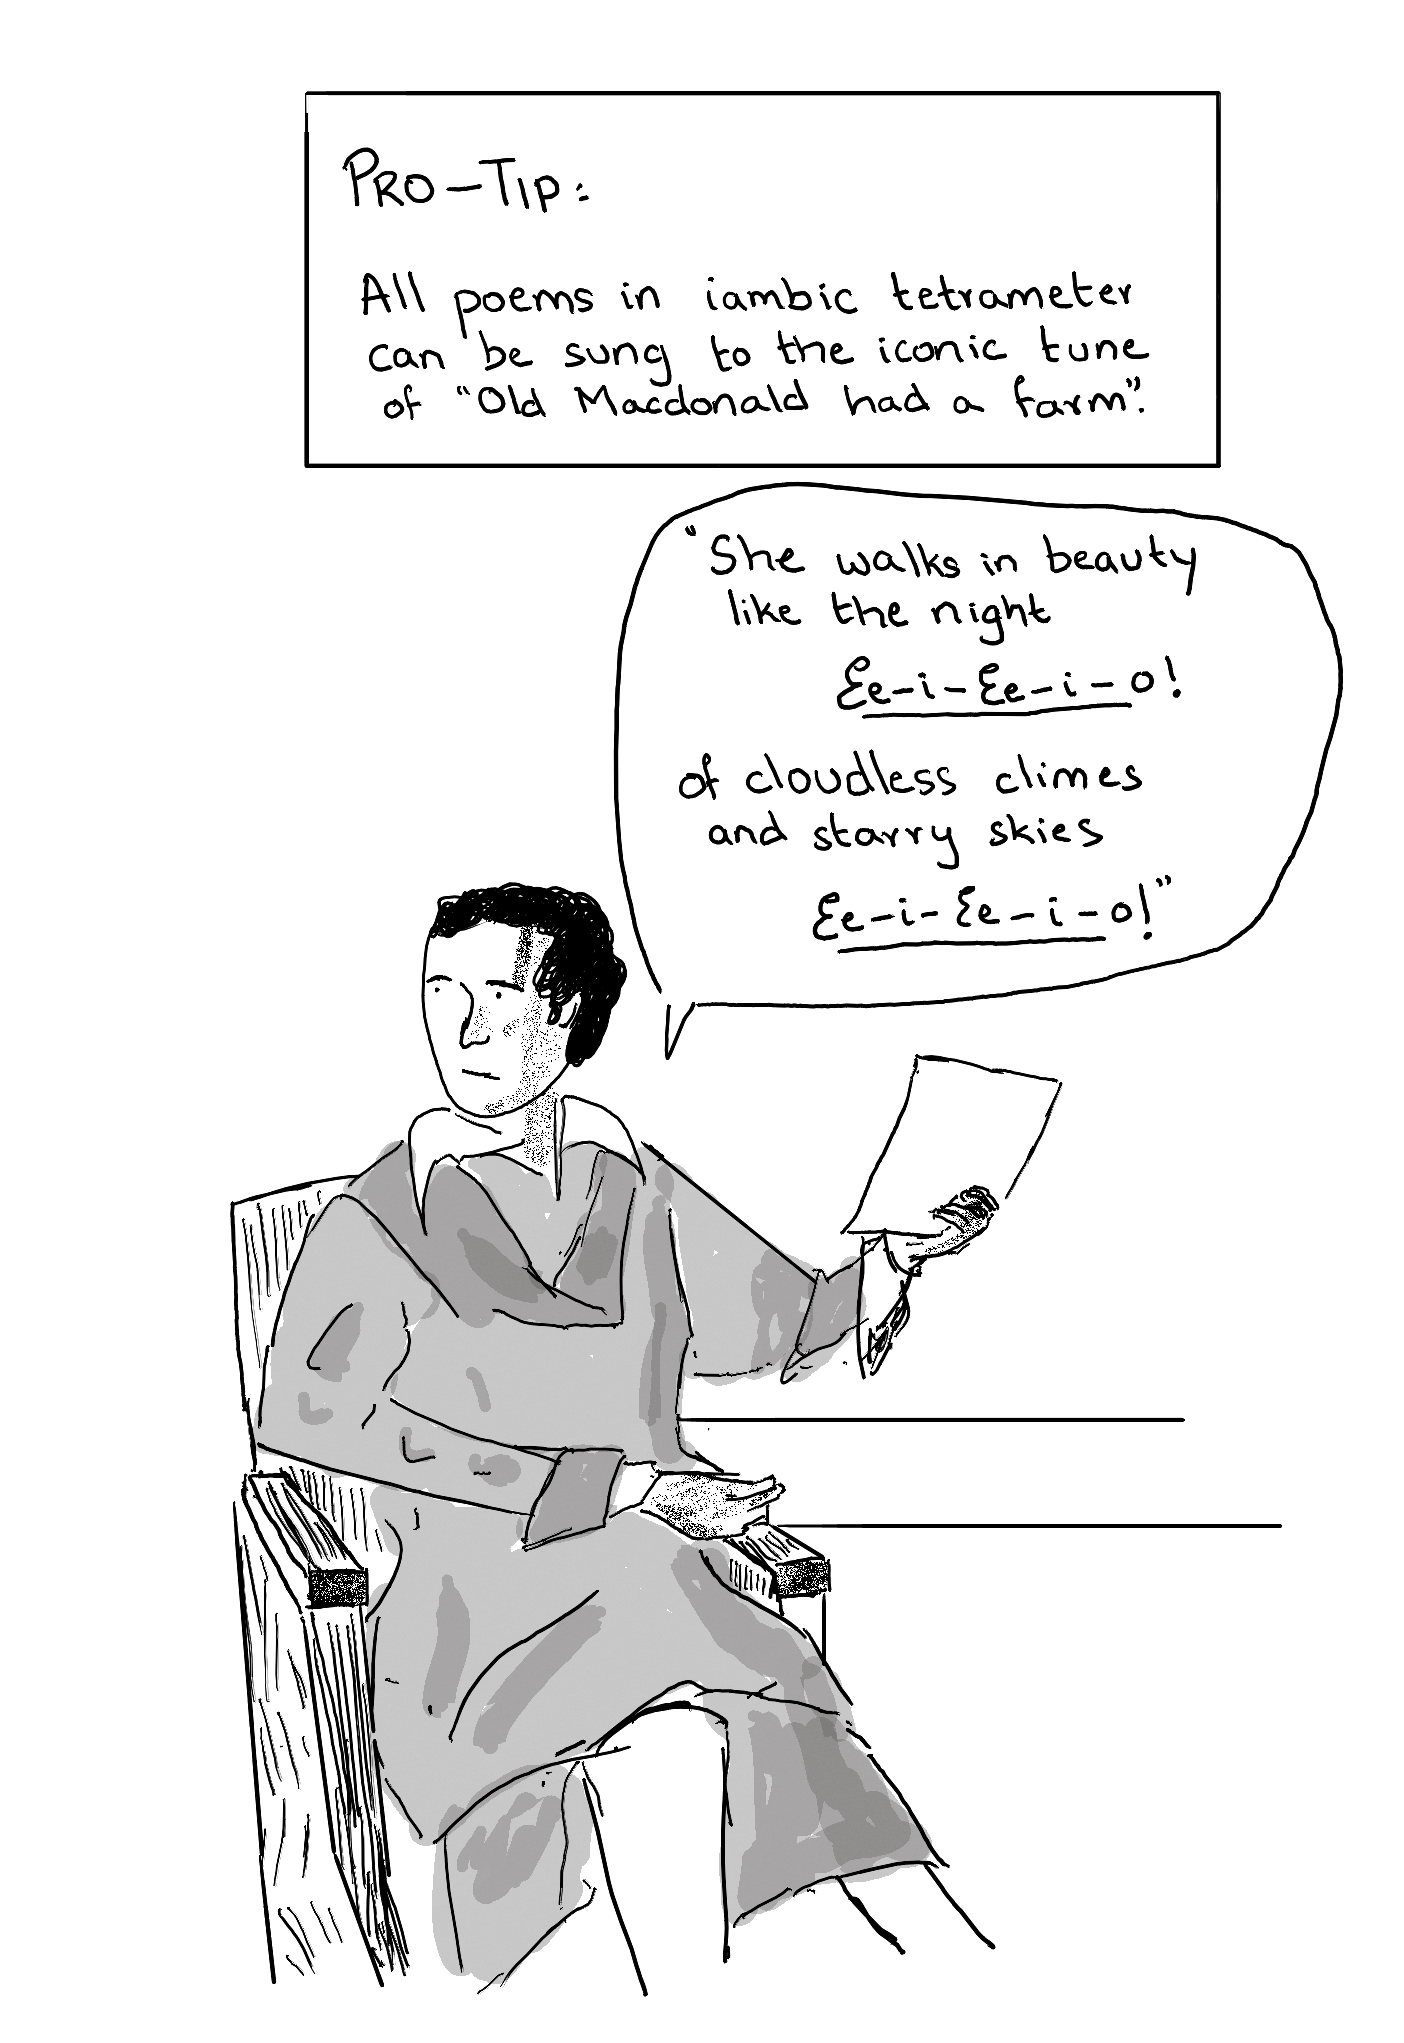 Pro-Tip:
All poems in iambic tetrameter
can be sung to the iconic tune
of "Old Macdonald had a farm".
"She walks in beauty
like the night
Ee-i-Ee-i-o!
of cloudless climes
and starry skies
Ee-i-Ee-i-o!"